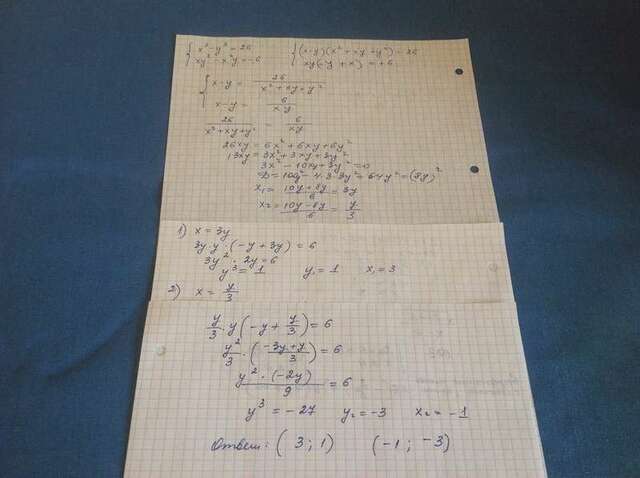 { x³-y³=26 { (x-y)(x²+xy+y²)=26
xy²-x²y=-6 xy(-y+x)=+6
{ x-y = 26/(x²+xy+y²)
x-y = 6/xy
26/(x²+xy+y²) = 6/xy
26xy=6x²+6xy+6y²
13xy=3x²+3xy+3y²
3x²-10xy+3y²=0
D=100y²-4·3·3y²=64y²=(8y)²
x₁=(10y+8y)/6=3y
x₂=(10y-8y)/6=y/3
1) x=3y
3y·y·(-y+3y)=6
3y²·2y=6
y³=1 y₁=1 x₁=3
2) x=y/3
y/3·y(-y+y/3)=6
y²/3·((-3y+y)/3)=6
y²·(-2y)/9=6
y³=-27 y₂=-3 x₂=-1
Ответ: (3;1) (-1;-3)